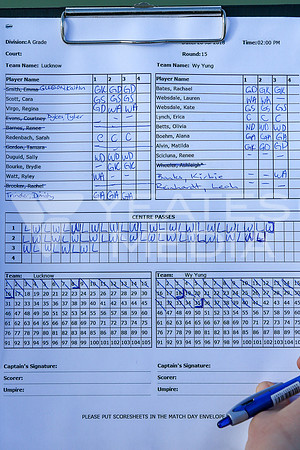 Division: A Grade Time: 02:00 PM
Court: Round: 15
Team Name: Lucknow Team Name: Wy Yung
Player Name 1 2 3 4 Player Name 1 2 3 4
Smith, Emma GK GD GD Bates, Rachael GD GK GK
Scott, Cara GS GS GS Websdale, Lauren WA WA
Virgo, Regina GD WA WA Websdale, Kate GS GS GS
Evans, Courtney Dyke, Tyler Lynch, Erica C C C
Barnes, Renee Betts, Olivia WD WD WD
Redenbach, Sarah C C C Boehm, Alana GA GA GA
Gordon, Tamara Alvin, Matilda GK GD GD
Duguid, Sally WD WD WD Scicluna, Renee
Bourke, Brydie GK GK Wheeler, Ashleigh
Watt, Ryley WA Banks, Kirbie WA
Brooker, Rachel Reinhardt, Leah
GA GA GA
CENTRE PASSES
1
2
3
4
Team: Lucknow Team: Wy Yung
1 2 3 4 5 6 7 8 9 10 11 12 13 14 15 1 2 3 4 5 6 7 8 9 10 11 12 13 14 15
16 17 18 19 20 21 22 23 24 25 26 27 28 29 30 16 17 18 19 20 21 22 23 24 25 26 27 28 29 30
31 32 33 34 35 36 37 38 39 40 41 42 43 44 45 31 32 33 34 35 36 37 38 39 40 41 42 43 44 45
46 47 48 49 50 51 52 53 54 55 56 57 58 59 60 46 47 48 49 50 51 52 53 54 55 56 57 58 59 60
61 62 63 64 65 66 67 68 69 70 71 72 73 74 75 61 62 63 64 65 66 67 68 69 70 71 72 73 74 75
76 77 78 79 80 81 82 83 84 85 86 87 88 89 90 76 77 78 79 80 81 82 83 84 85 86 87 88 89 90
91 92 93 94 95 96 97 98 99 100 101 102 103 104 105 91 92 93 94 95 96 97 98 99 100 101 102 103 104 105
Captain's Signature: Captain's Signature:
Scorer: Scorer:
Umpire: Umpire:
PLEASE PUT SCORESHEETS IN THE MATCH DAY ENVELOPE